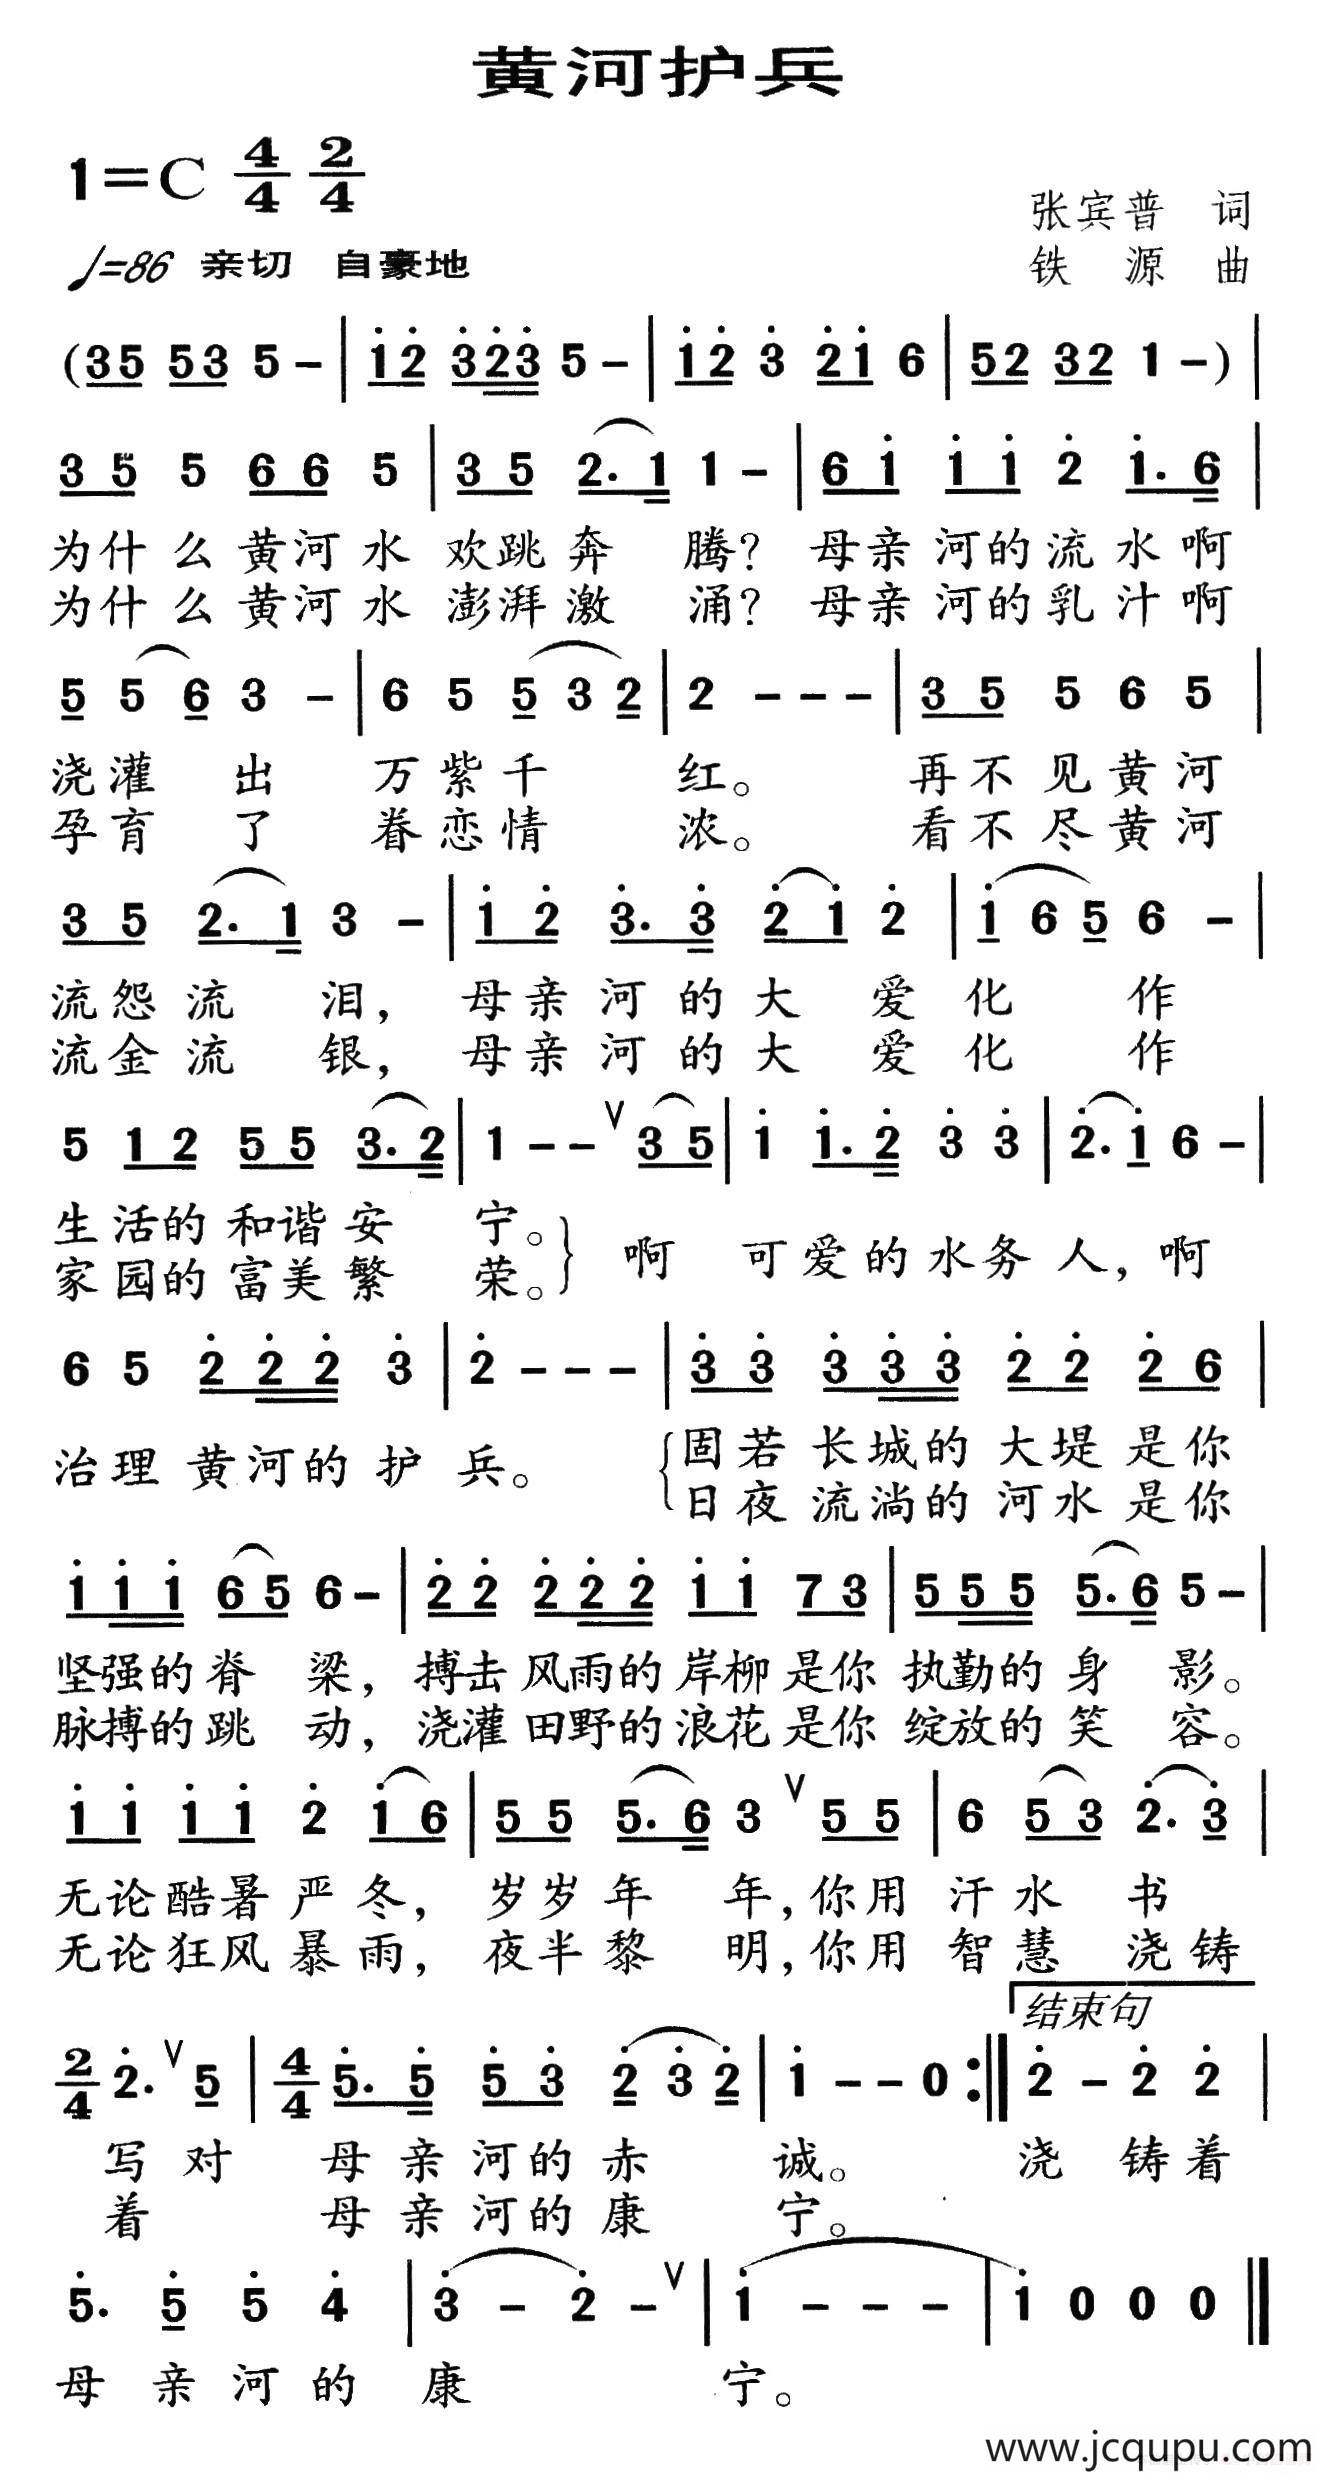 黄河护兵
1=C 4/4 2/4
张宾普 词
♩=86 亲切 自豪地
铁 源 曲
(35 53 5 - | i̇2̇ 3̇2̇3̇ 5 - | i̇2̇ 3̇ 2̇i̇ 6 | 52 32 1 -) |
3 5 5 6 6 5 | 3 5 2. 1 1 - | 6 i̇ i̇ i̇ 2̇ i̇. 6 |
为什么黄河水 欢跳奔 腾? 母亲河的流水啊
为什么黄河水 澎湃激 涌? 母亲河的乳汁啊
5 5 6 3 - | 6 5 5 3 2 | 2 - - - | 3 5 5 6 5 |
浇灌 出 万紫千 红。 再不见黄河
孕育 了 眷恋情 浓。 看不尽黄河
3 5 2. 1 3 - | i̇ 2̇ 3̇. 3̇ 2̇ i̇ 2̇ | i̇ 6 5 6 - |
流怨流 泪, 母亲河的大 爱化 作
流金流 银, 母亲河的大 爱化 作
5 1 2 5 5 3. 2 | 1 - - V 3 5 | i̇ i̇. 2̇ 3̇ 3̇ | 2̇. i̇ 6 - |
生活的和谐安 宁。
啊 可爱的水务人, 啊
家园的富美繁 荣。
6 5 2̇ 2̇ 2̇ 3̇ | 2̇ - - - | 3̇ 3̇ 3̇ 3̇ 3̇ 2̇ 2̇ 2̇ 6 |
固若长城的大堤是你
治理黄河的护 兵。
日夜流淌的河水是你
i̇ i̇ i̇ 6 5 6 - | 2̇ 2̇ 2̇ 2̇ 2̇ i̇ i̇ 7 3 | 5 5 5 5. 6 5 - |
坚强的脊 梁, 搏击风雨的岸柳是你执勤的身 影。
脉搏的跳 动, 浇灌田野的浪花是你绽放的笑 容。
i̇ i̇ i̇ i̇ 2̇ i̇ 6 | 5 5 5. 6 3 V 5 5 | 6 5 3 2̇. 3̇ |
无论酷暑严冬, 岁岁年 年, 你用汗水书
无论狂风暴雨, 夜半黎 明, 你用智慧浇铸
结束句
2/4 2̇. V 5 | 4/4 5̇. 5̇ 5̇ 3̇ 2̇ 3̇ 2̇ | i̇ - - 0 :‖ 2̇ - 2̇ 2̇ |
写对 母亲河的赤 诚。 浇 铸着
着 母亲河的康 宁。
5̇. 5̇ 5̇ 4̇ | 3̇ - 2̇ - V | i̇ - - - | i̇ 0 0 0 ‖
母亲河的康 宁。
www.jcqupu.com